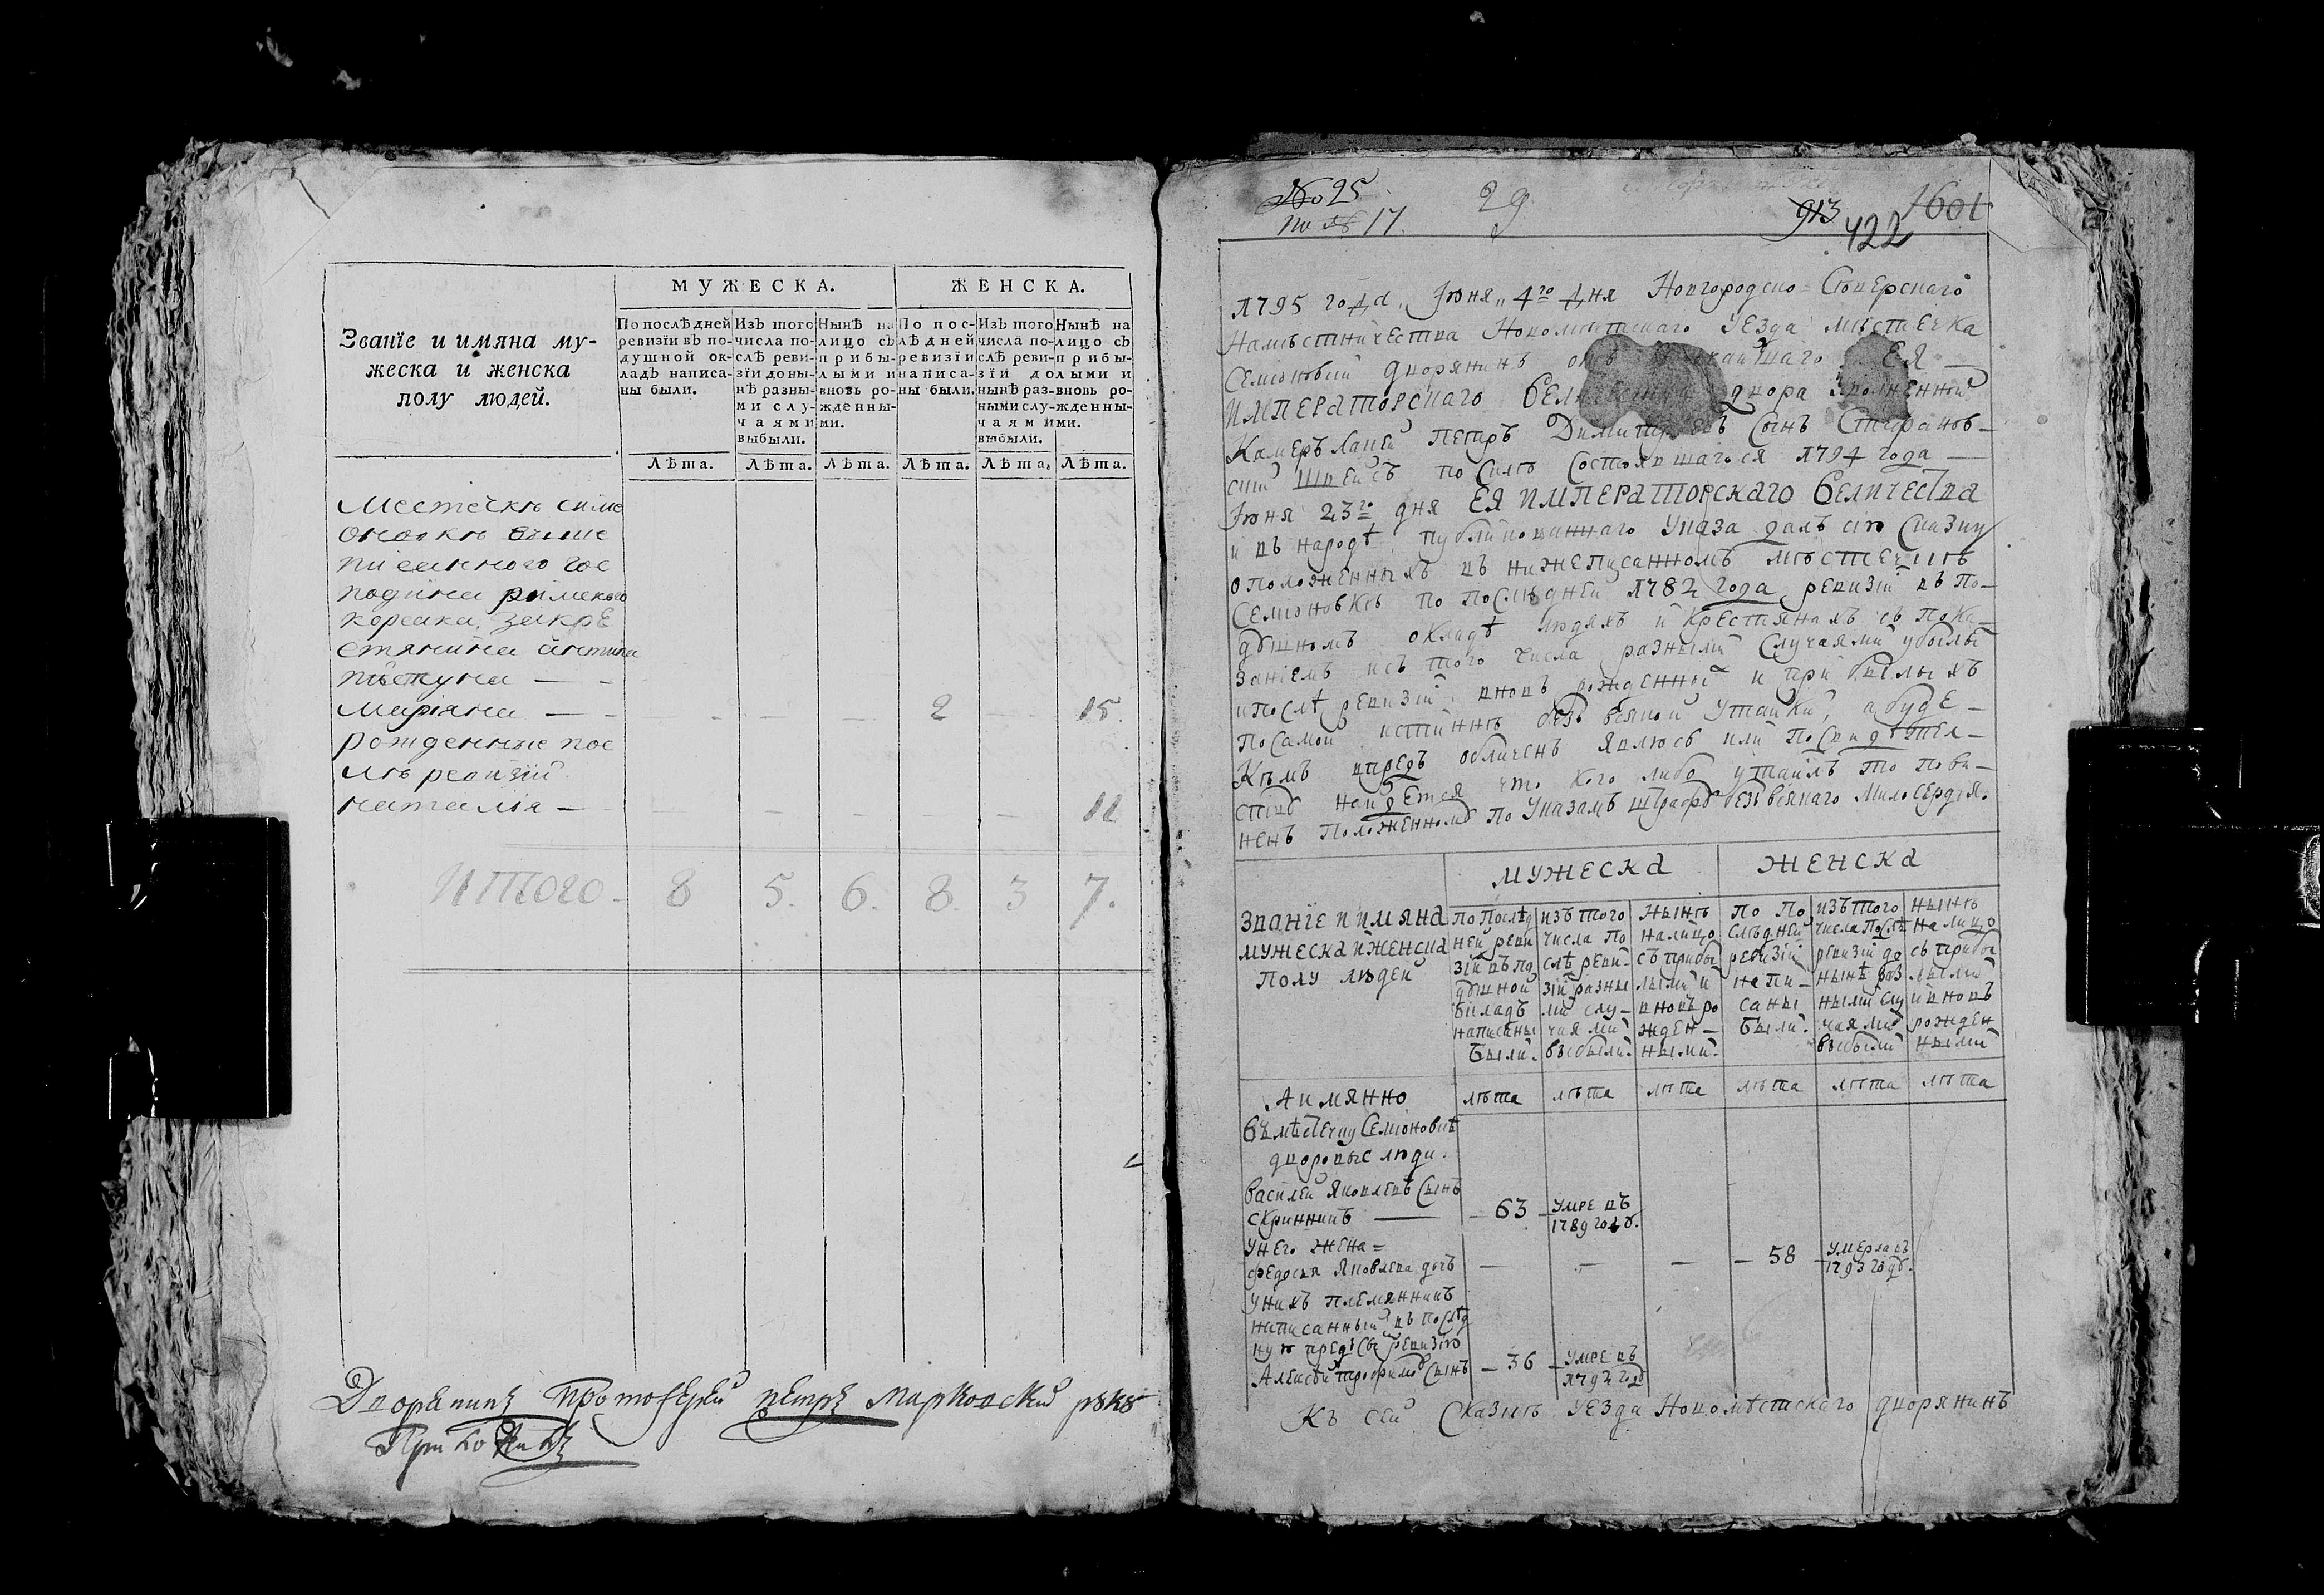 Званїе и имяна му-
жеска и женска
полу людей.
МУЖЕСКА.
ЖЕНСКА.
По послѣдней
ревизїи въ по-
душной ок-
ладъ написа-
ны были.
Изъ того
числа по-
слѣ реви-
зїи доны-
нѣ разны-
ми слу-
чаями
выбыли.
Нынѣ на
лицо съ
прибы-
лыми и
вновь ро-
жденны-
ми.
По пос-
лѣдней
ревизїи
написа-
ны были.
Изъ того
числа по-
слѣ реви-
зїи до
нынѣ раз-
ными слу-
чаями
выбыли.
Нынѣ на
лицо съ
прибы-
лыми и
вновь ро-
жденны-
ми.
Лѣта. Лѣта. Лѣта. Лѣта. Лѣта. Лѣта.
Местечкѣ симе
оновкѣ выше
писанного гос
подина римского
корсака, за кре
стянина
Мариана — 2 15.
рожденные пос
лѣ ревизіи
наталія — 11
Итого 8 5. 6. 8. 3 7.
Дворянинъ протоіерей петръ марковский рукѹ
Приложилъ
№ 25
по № 17.
29
913
1601
422
1795 года Іюня 4го дня Новгородско=Сѣверскаго
Намѣстничества Новомѣстскаго уезда мѣстечка
Семіоновки дворянинъ Ея
ИМПЕРАТОРСКАГО двора
Камеръ Лакей Петръ Димитриевъ Сынъ Стефанов-
ский по силѣ состоявшагося 1794 года —
Іюня 23го дня ЕЯ ИМПЕРАТОРСКАГО Величества
и въ народѣ публикованнаго Указа далъ сію сказку
о положенныхъ въ нижеписанномъ мѣстечкѣ
Семіоновкѣ по послѣдней 1782 года ревизіи въ По-
душномъ окладѣ людяхъ и крестянахъ съ Пока-
заніемъ исъ того числа разными случаями убылы
и послѣ ревизіи вновь рожденной и прибылыхъ
по самой истиннѣ безъ всякой утайки, а буде —
Кѣмъ впредъ обличенъ явлюсь или по свидѣтел-
ству найдется что кого либо утаилъ то пови-
ненъ положенному по Указамъ штрафу безъ всякаго Милосердія.
Званіе и имяна
мужеска и женска
полу людей
МУЖЕСКА
ЖЕНСКА
По послѣд
ней реви
зіи въ по
душной
окладъ
написаны
были.
изъ того
числа по
слѣ реви-
зіи разны
ми слу-
чаями
выбыли.
Нынѣ
налицо
съ прибы
лыми и
вновь ро
жден-
ными.
По по
слѣдней
ревизіи
напи-
саны
были.
изъ того
числа послѣ
ревизіи до
нынѣ раз
ными слу
чаями
выбыли
нынѣ
на лицо
съ прибы
лыми
и вновь
рожден
ными
А имянно
лѣта лѣта лѣта лѣта лѣта лѣта
Въ мѣстечку Семіоновкѣ
дворовые люди.
Василей Яковлевъ Сынъ
скринникъ — 63 умре въ
1789 году.
У него жена=
Федосия Яковлева дочь — — — 58 умерла въ
1793 году.
у нихъ племянникъ
написанный въ послѣд
ную предъ съ ревизію
Алексѣй трофимовъ сынъ — 36 умре въ
1792 году
Къ сей сказкѣ уезда Новомѣстскаго дворянинъ